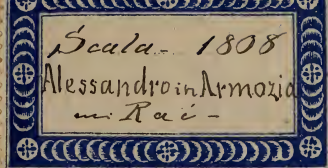 Scala - 1808
Alessandro in Armozia